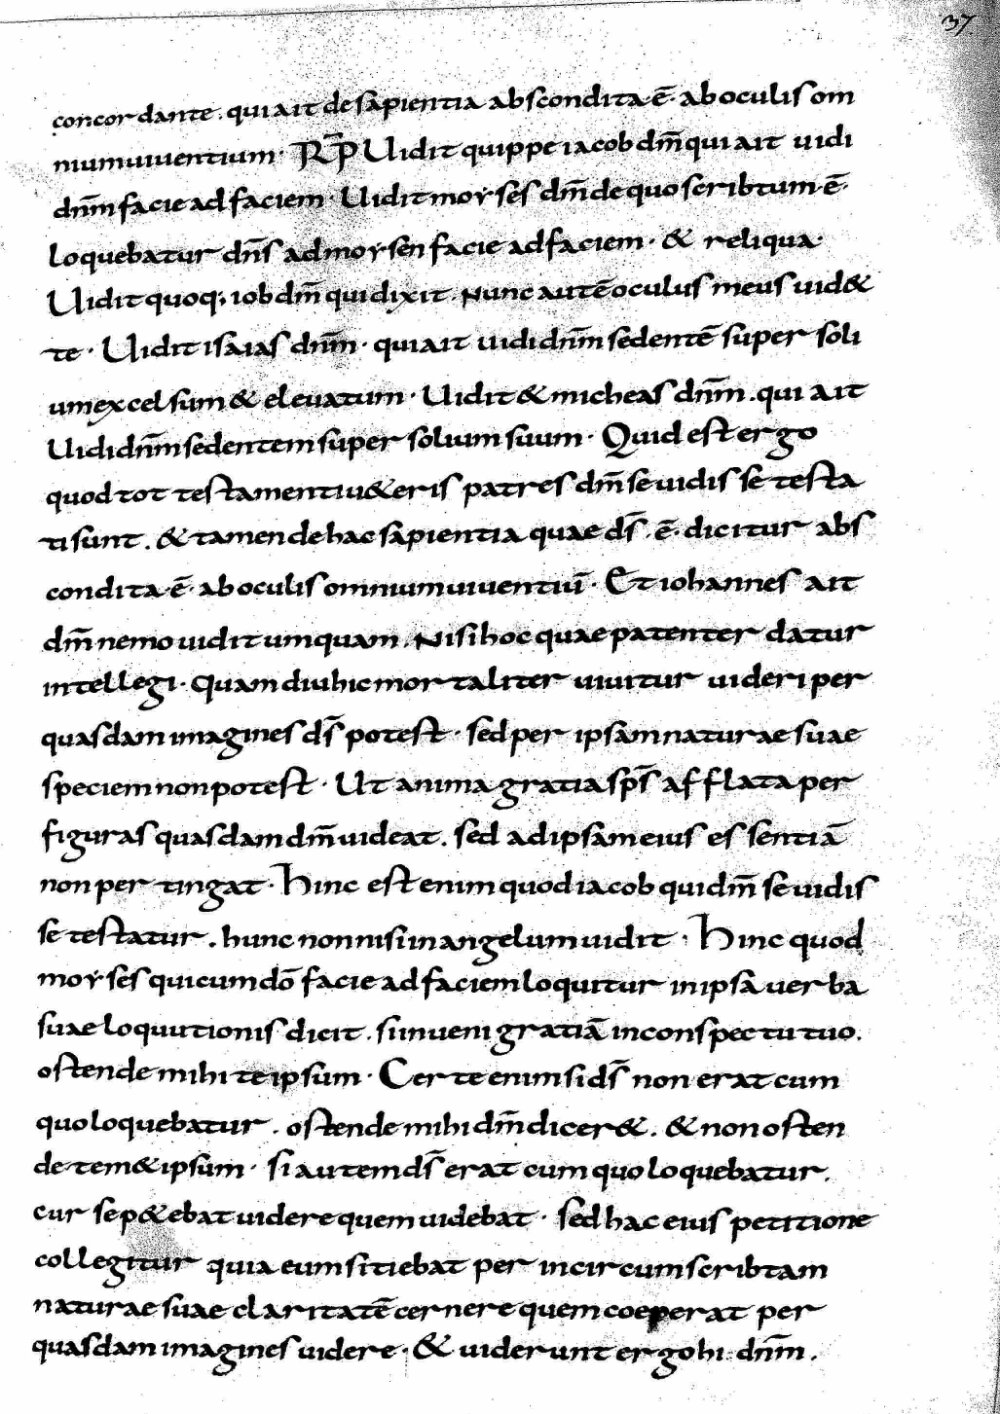 37
concordante. qui ait de sapientia abscondita ē· ab oculis om
nium uiuentium· R̄P̄ Uidit quippe iacob dm̄ qui ait uidi
dn̄m facie ad faciem· Uidit moyses dm̄ de quo scribtum ē·
loquebatur dn̄s ad moysen facie ad faciem· & reliqua·
Uidit quoq; iob dm̄ qui dixit. Nunc autē oculus meus uid&
te· Uidit isaias dn̄m· qui ait uidi dn̄m sedentē super soli
um excelsum & eleuatum· Uidit & micheas dn̄m. qui ait
Uidi dn̄m sedentem super solium suum· Quid est ergo
quod tot testamenti u&eris patres dm̄ se uidisse testa
ti sunt. & tamen de hac sapientia quae ds̄ ē· dicitur abs
condita ē· ab oculis omnium uiuentiū· Et iohannes ait
dm̄ nemo uidit umquam. Nisi hoc quae patenter datur
intellegi· quamdiu hic mortaliter uiuitur uideri per
quasdam imagines ds̄ potest· sed per ipsam naturae suae
speciem non potest· Ut anima gratia sps̄ afflata per
figuras quasdam dm̄ uideat. sed ad ipsam eius essentiā
non pertingat· Hinc est enim quod iacob qui dm̄ se uidis
se testatur. hunc non nisi in angelum uidit· Hinc quod
moyses qui cum dō facie ad faciem loquitur in ipsā uerba
suae loquutionis dicit. si inueni gratiā in conspectu tuo.
ostende mihi te ipsum· Certe enim si ds̄ non erat cum
quo loquebatur. ostende mihi dm̄ dicer&. & non osten
de tem&ipsum· si autem ds̄ erat cum quo loquebatur.
cur se p&ebat uidere quem uidebat· sed hac eius petitione
collegitur quia eum sitiebat per incircumscribtam
naturae suae claritatē cernere quem coeperat per
quasdam imagines uidere· & uiderunt ergo hi dn̄m.